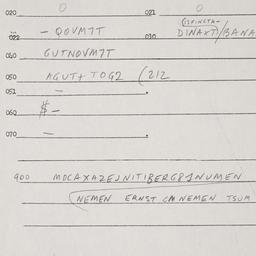 020 0 021 0
022 - QOVM7T 030 DINAXT/BANA
060 GUTNOVM7T
050 AGUT+TOG2 (212
051 -
069 $-
070 -
900 MDCAXAZEJNITIBERG8JNUMEN
(NEMEN ERNST CM NEMEN TSUM